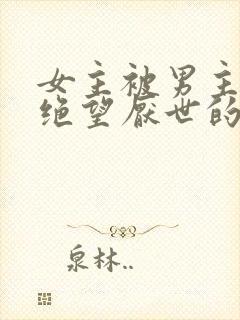 女主被男主
绝望厌世的
泉林..